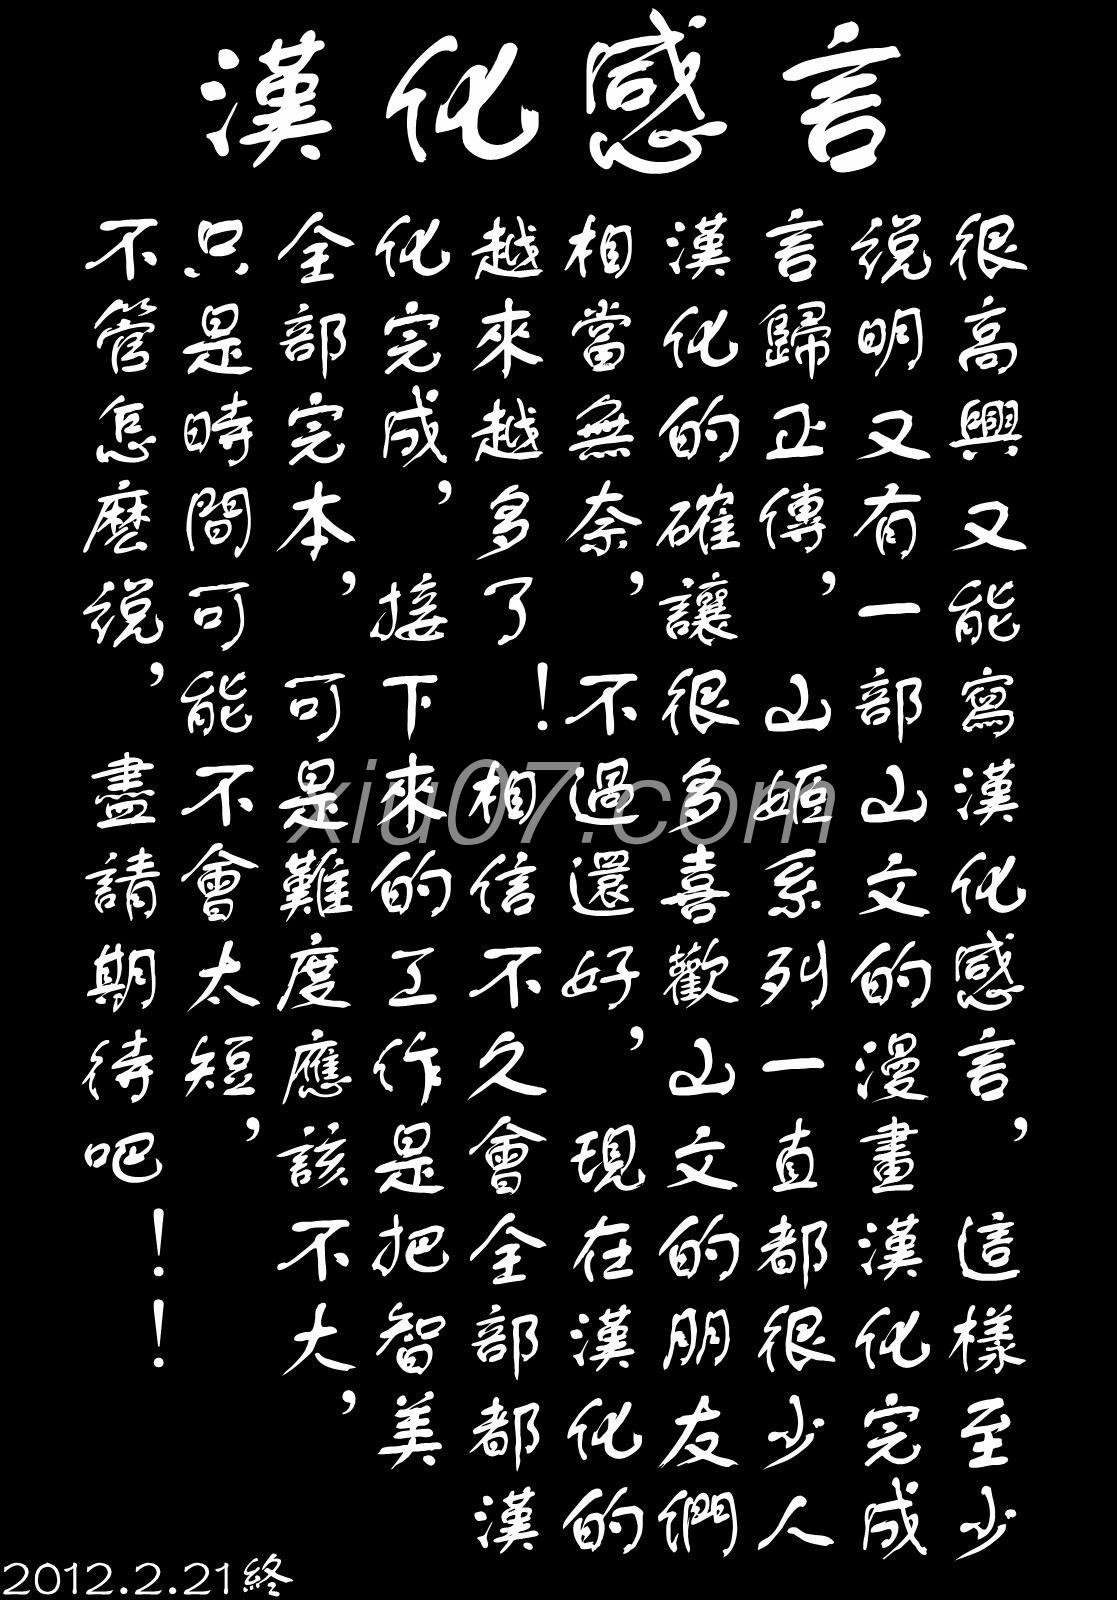 漢化感言
很高興又能寫漢化感言，這樣至少
說明又有一部山文的漫畫漢化完成
言歸正傳，山姬系列一直都很少人
漢化的確讓很多喜歡山文的朋友們
相當無奈，不過還好，現在漢化的
越來越多了！相信不久會全部都漢
化完成，接下來的工作是把智美
全部完本，可是難度應該不大，
只是時間可能不會太短，
不管怎麼說，盡請期待吧！！
xiu07.com
2012.2.21終